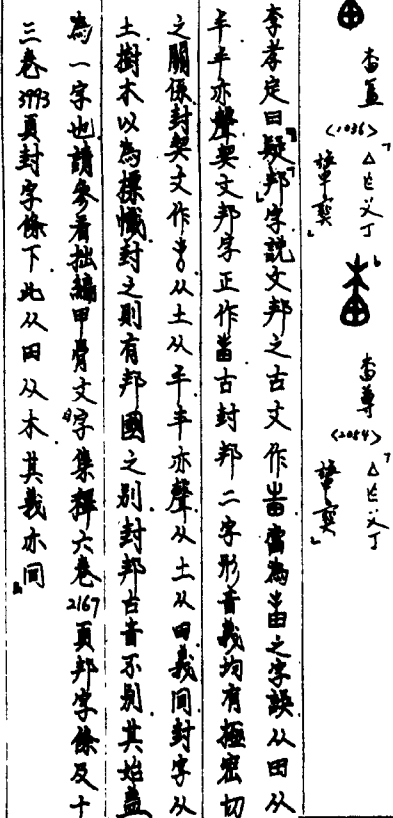 畬盉 〈1036〉 「△乍父丁 障彝」
畬尊 〈2084〉 「△乍父丁 障彝」
李孝定曰「疑『邦』字說文邦之古文作𤰫當為𤰫之字誤从田从
丰丰亦聲契文邦字正作𤰫古封邦二字形音義均有極密切
之關係封契文作从土从丰丰亦聲从土从田義同封字从
土樹木以為標幟封之則有邦國之別封邦古音不別其始蓋
為一字也請參看拙編甲骨文字集釋六卷2167頁邦字條及十
三卷3993頁封字條下此从田从木其義亦同」